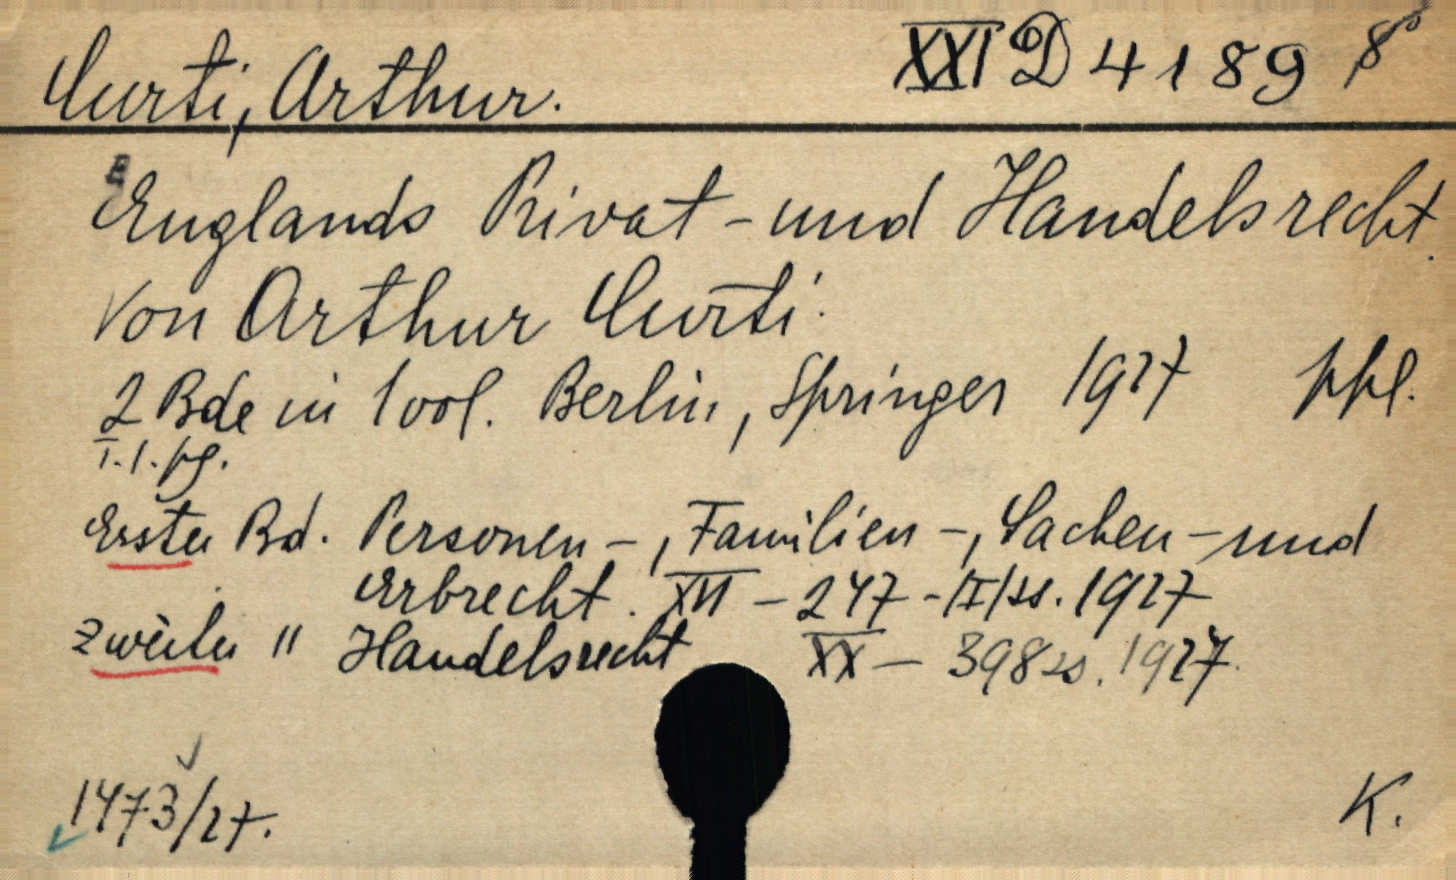 Curti, Arthur. XXI D 4189 8°
Englands Privat- und Handelsrecht.
Von Arthur Curti.
2 Bde in 1 vol. Berlin, Springer 1927 ppl.
Erster Bd. Personen-, Familien-, Sachen- und
Erbrecht. XVI - 247 - /I/ ss. 1927
Zweiter " Handelsrecht XX - 398 ss. 1927.
1473/27. K.